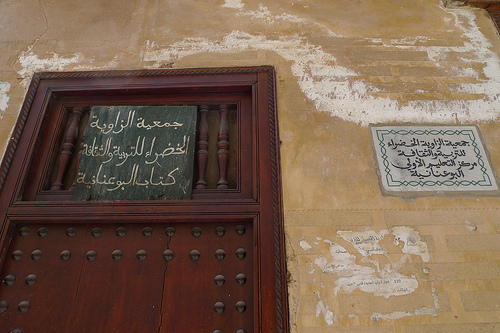 جمعية الزاوية
الخضراء للتربية والثقافة
كتاب البوعنانية
جمعية الزاوية الخضراء
للتربية والثقافة
مركز التعليم الأولي
البوعنانية